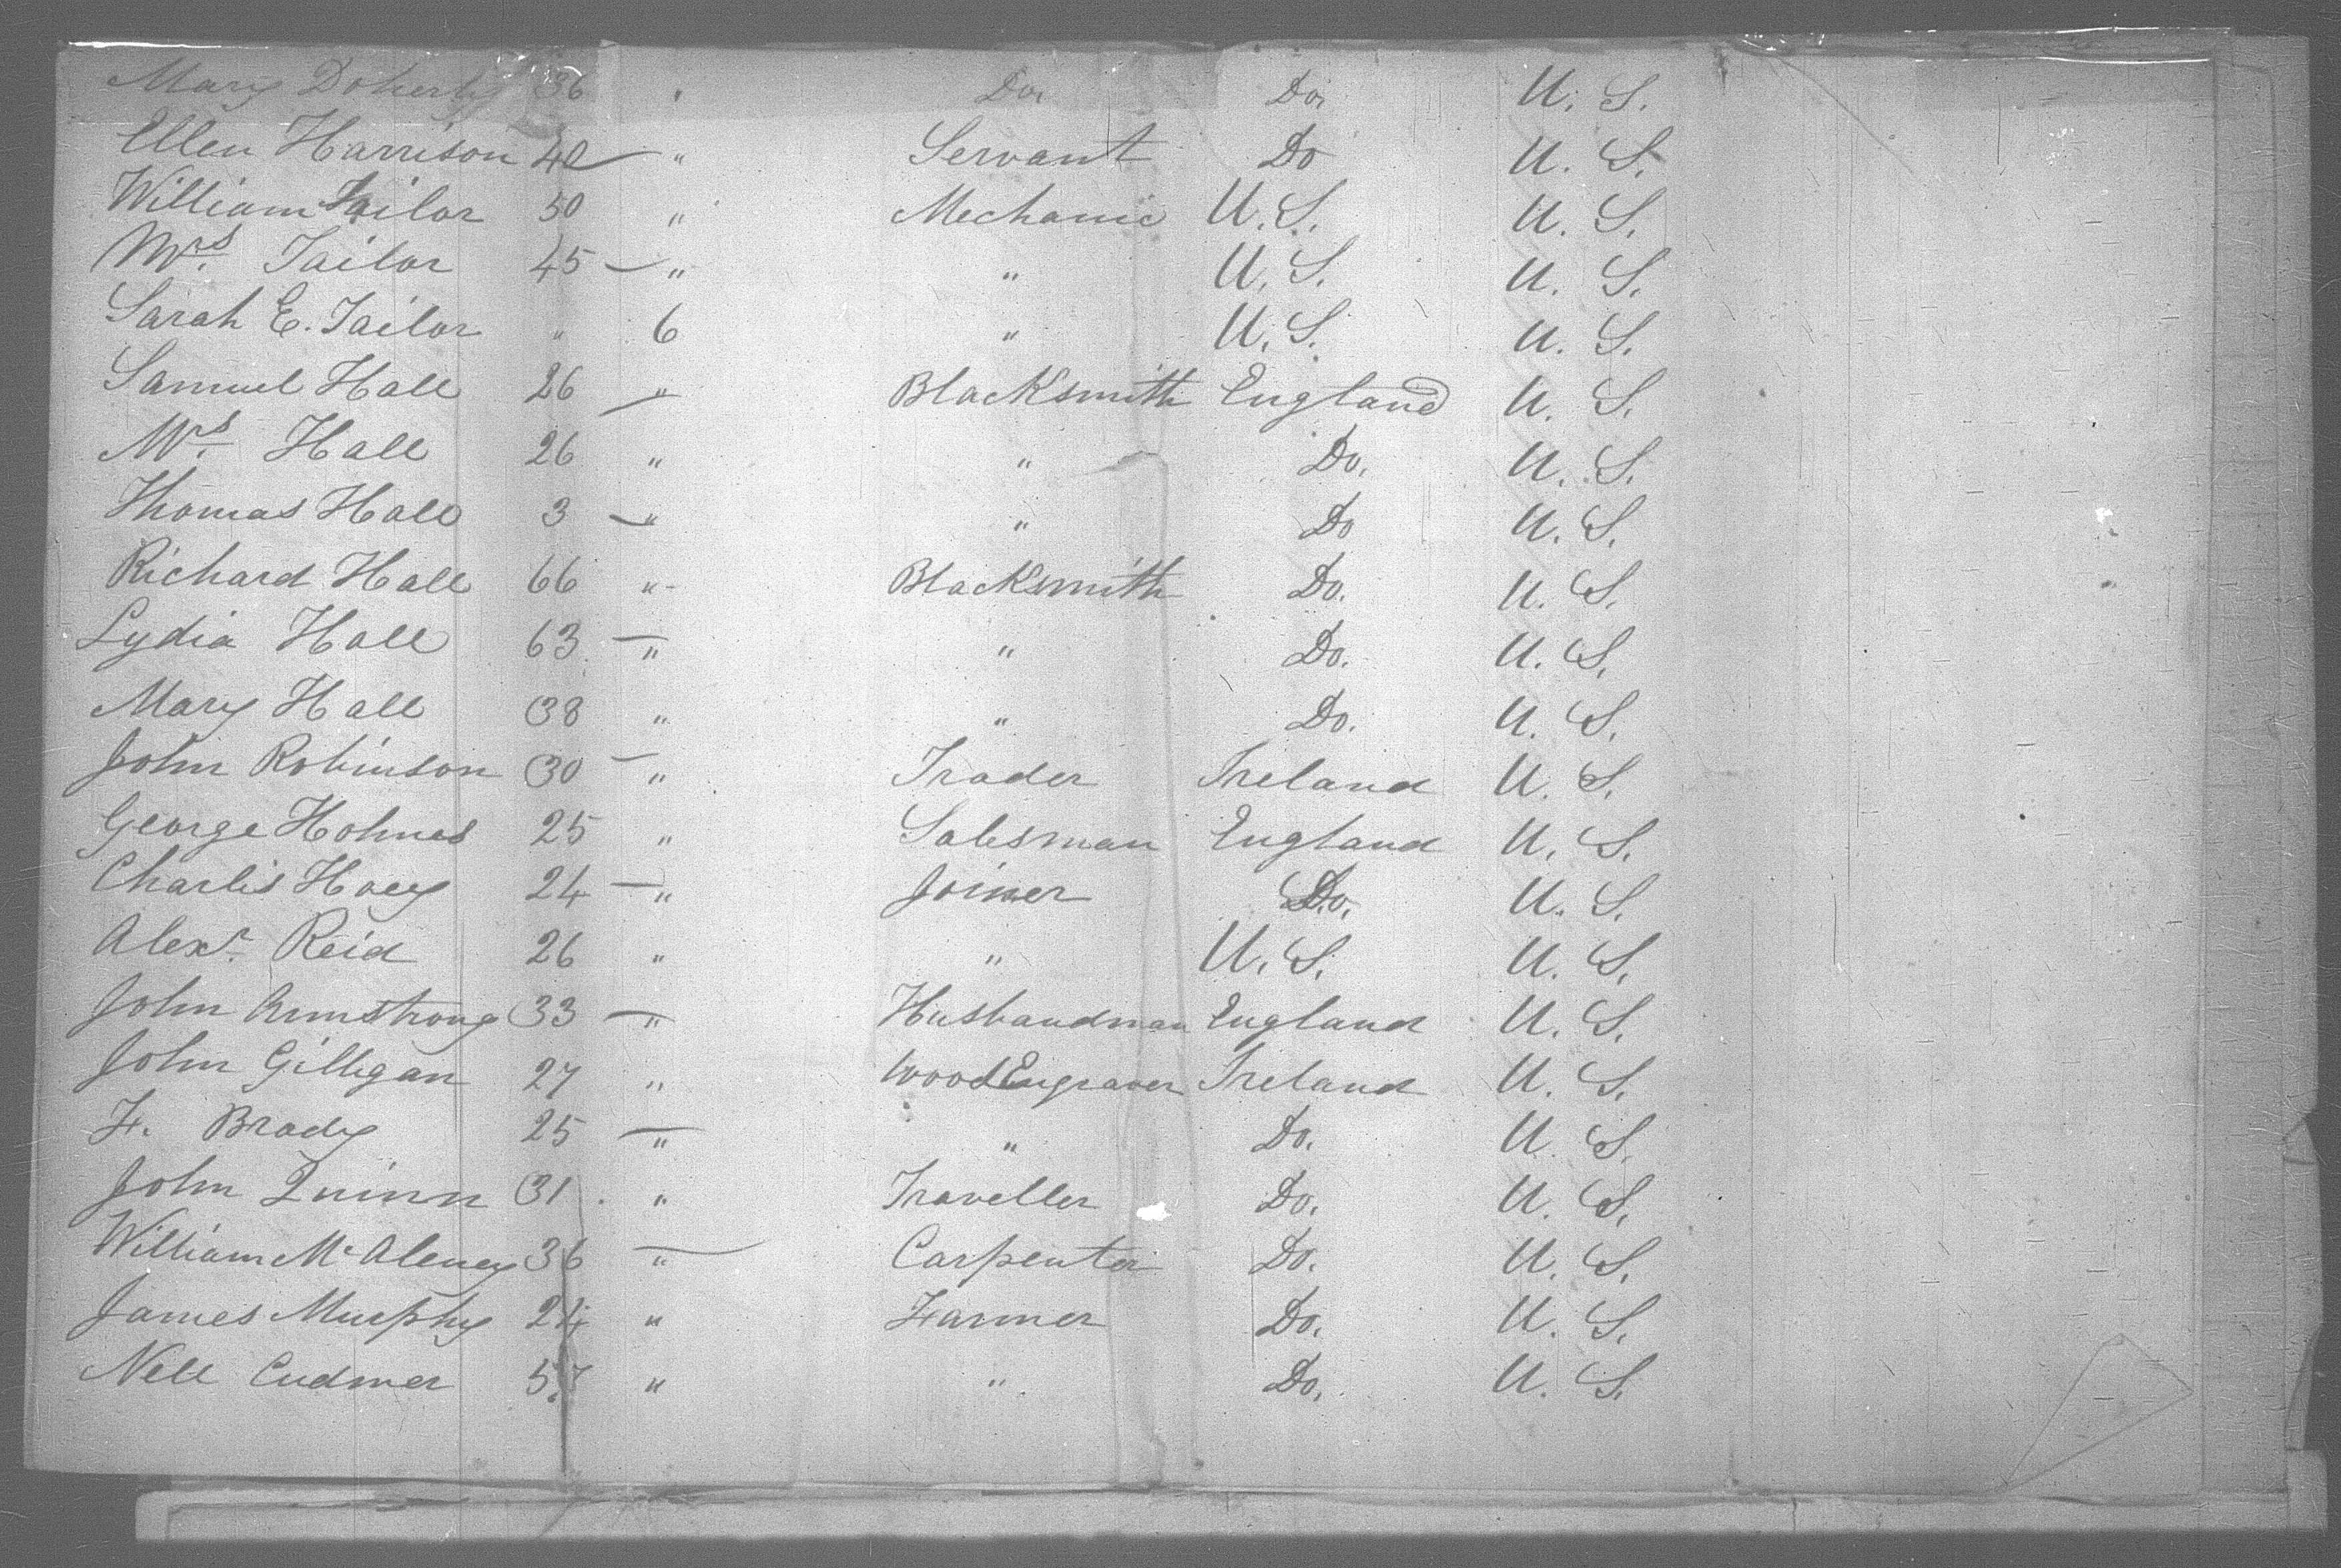 Mary Doherty 36 " Do. Do. U. S.
Ellen Harrison 40 " Servant Do U. S.
William Tailor 50 " Mechanic U. S. U. S.
Mrs. Tailor 45 " " U. S. U. S.
Sarah E. Tailor " 6 " U. S. U. S.
Samuel Hall 26 " Blacksmith England U. S.
Mrs. Hall 26 " " Do. U. S.
Thomas Hall 3 " " Do U. S.
Richard Hall 66 " Blacksmith Do. U. S.
Lydia Hall 63 " " Do. U. S.
Mary Hall 38 " " Do. U. S.
John Robinson 30 " Trader Ireland U. S.
George Holmes 25 " Salesman England U. S.
Charles Hoey 24 " Joiner Do. U. S.
Alexr. Reid 26 " " U. S. U. S.
John Armstrong 33 " Husbandman England U. S.
John Gilligan 27 " Wood Engraver Ireland U. S.
F. Brady 25 " " Do. U. S.
John Quinn 31 " Traveller Do. U. S.
William McAleney 36 " Carpenter Do. U. S.
James Murphy 24 " Farmer Do. U. S.
Nell Cudmer 57 " " Do. U. S.